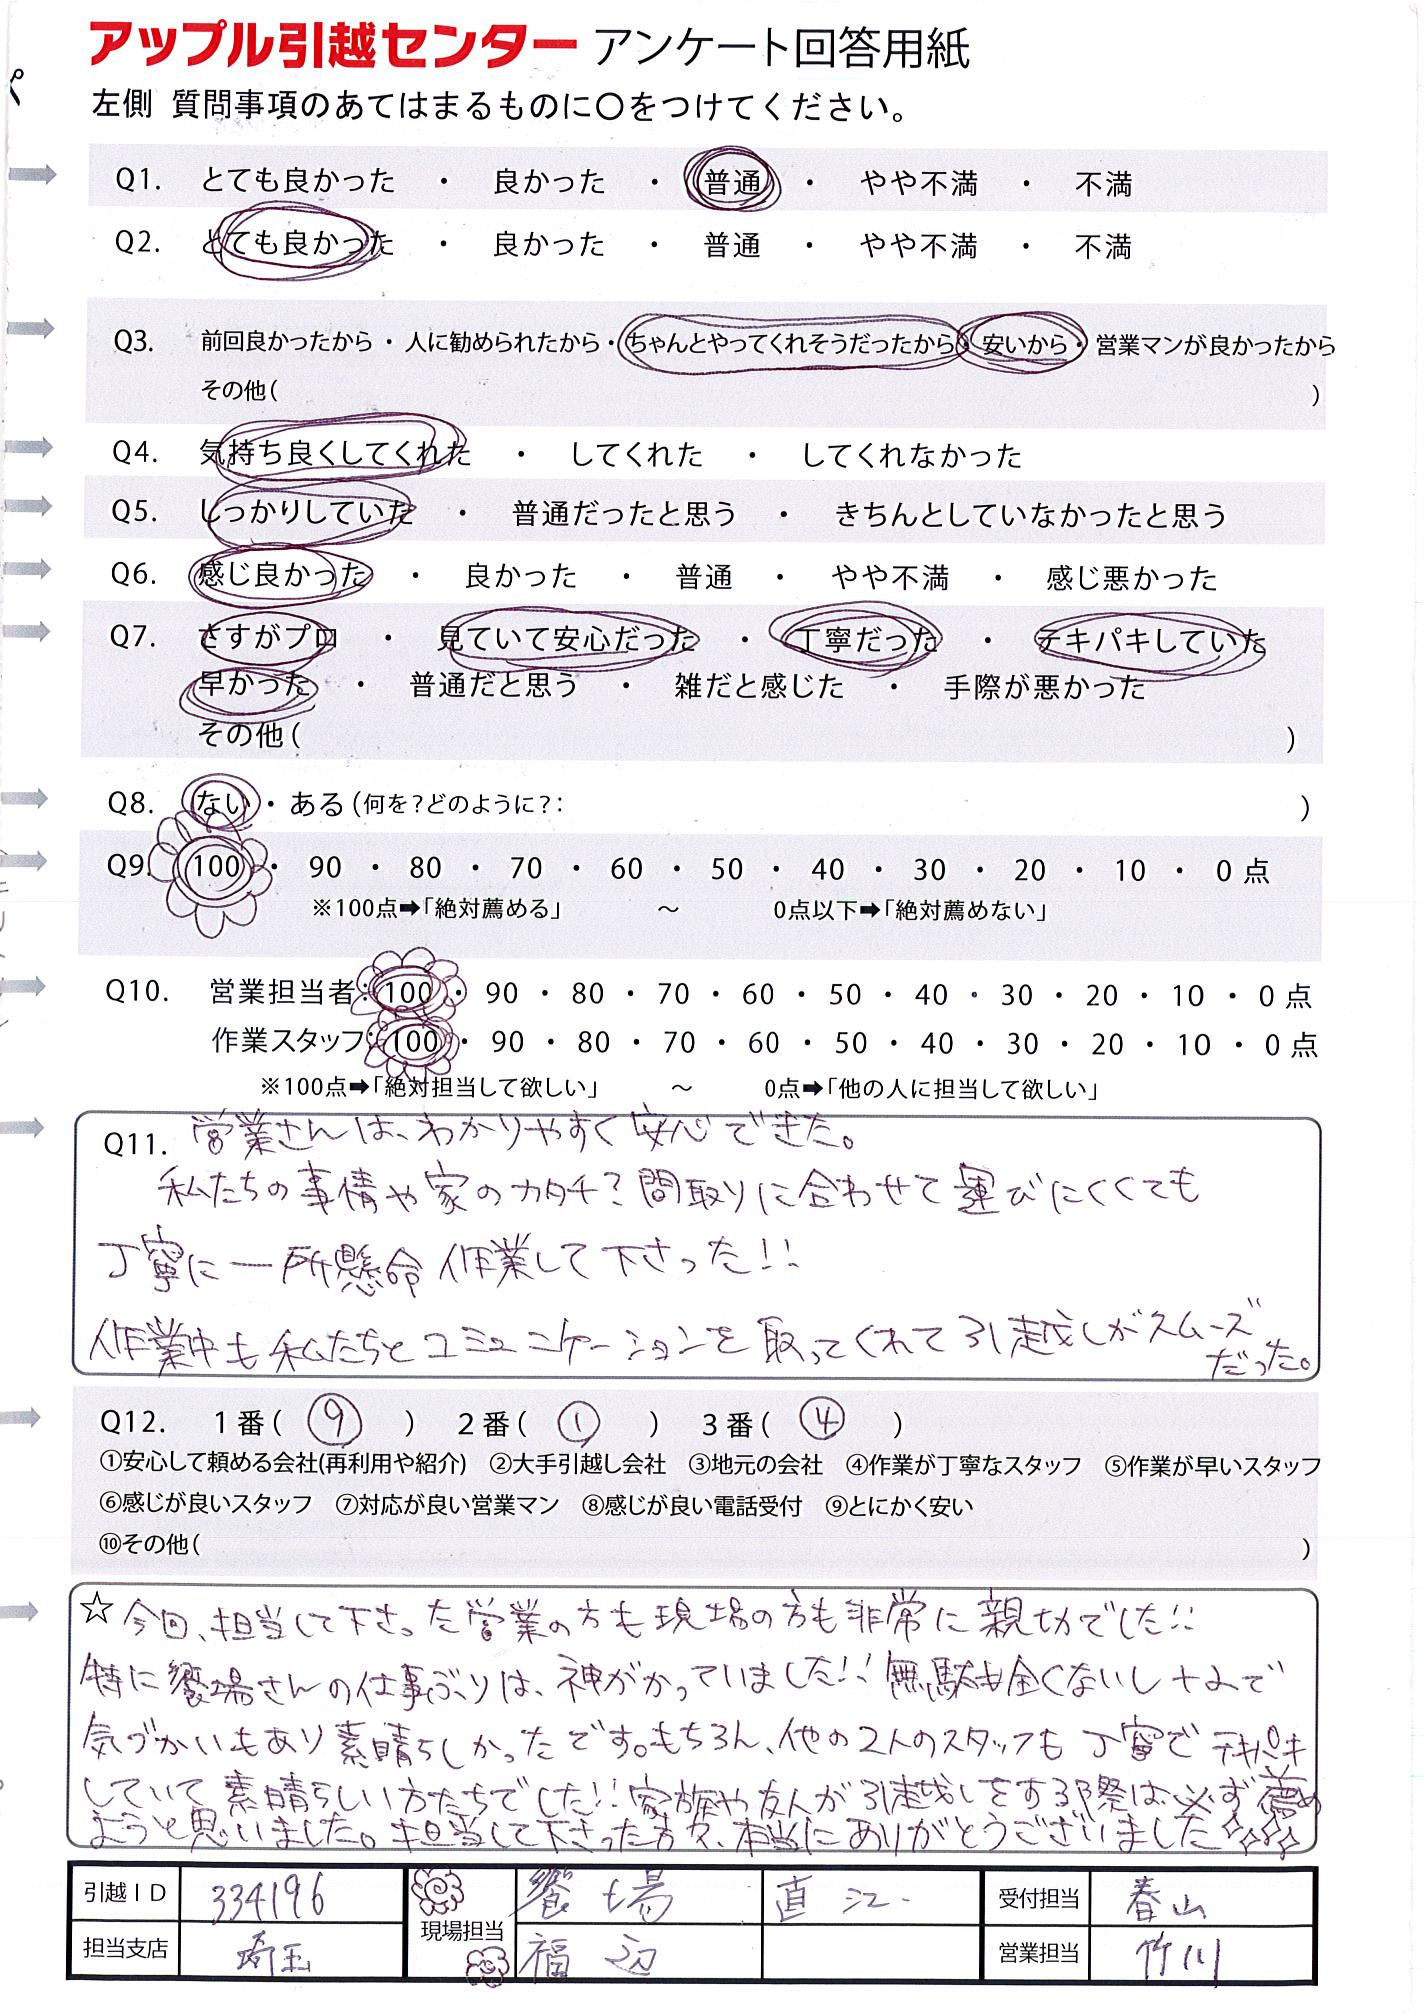 アップル引越センター アンケート回答用紙
左側 質問事項のあてはまるものに○をつけてください。
Q1. とても良かった ・ 良かった ・ 普通 ・ やや不満 ・ 不満
Q2. とても良かった ・ 良かった ・ 普通 ・ やや不満 ・ 不満
Q3. 前回良かったから・人に勧められたから・ちゃんとやってくれそうだったから・安いから・営業マンが良かったから
その他( )
Q4. 気持ち良くしてくれた ・ してくれた ・ してくれなかった
Q5. しっかりしていた ・ 普通だったと思う ・ きちんとしていなかったと思う
Q6. 感じ良かった ・ 良かった ・ 普通 ・ やや不満 ・ 感じ悪かった
Q7. さすがプロ ・ 見ていて安心だった ・ 丁寧だった ・ テキパキしていた
早かった ・ 普通だと思う ・ 雑だと感じた ・ 手際が悪かった
その他( )
Q8. ない ・ ある(何を?どのように?: )
Q9. 100 ・ 90 ・ 80 ・ 70 ・ 60 ・ 50 ・ 40 ・ 30 ・ 20 ・ 10 ・ 0 点
※100点➡「絶対薦める」 ～ 0点以下➡「絶対薦めない」
Q10. 営業担当者:100 ・ 90 ・ 80 ・ 70 ・ 60 ・ 50 ・ 40 ・ 30 ・ 20 ・ 10 ・ 0 点
作業スタッフ:100 ・ 90 ・ 80 ・ 70 ・ 60 ・ 50 ・ 40 ・ 30 ・ 20 ・ 10 ・ 0 点
※100点➡「絶対担当して欲しい」 ～ 0点➡「他の人に担当して欲しい」
Q11. 営業さんは、わかりやすく安心できた。
私たちの事情や家のカタチ?間取りに合わせて運びにくくても
丁寧に一所懸命作業して下さった!!
作業中も私たちとコミュニケーションを取ってくれて引越しがスムーズ
だった。
Q12. 1番( ⑨ ) 2番( ① ) 3番( ④ )
①安心して頼める会社(再利用や紹介) ②大手引越し会社 ③地元の会社 ④作業が丁寧なスタッフ ⑤作業が早いスタッフ
⑥感じが良いスタッフ ⑦対応が良い営業マン ⑧感じが良い電話受付 ⑨とにかく安い
⑩その他( )
☆今回、担当して下さった営業の方も現場の方も非常に親切でした!!
特に饗場さんの仕事ぶりは、神がかっていました!!無駄も全くないし+αで
気づかいもあり素晴らしかったです。もちろん、他の2人のスタッフも丁寧でテキパキ
していて素晴らしい方たちでした!!家族や友人が引越しをする際は必ず薦め
ようと思いました。担当して下さった方々、本当にありがとうございました
引越ID 334196 現場担当 饗場 直江 受付担当 春山
担当支店 埼玉 福辺 営業担当 竹川